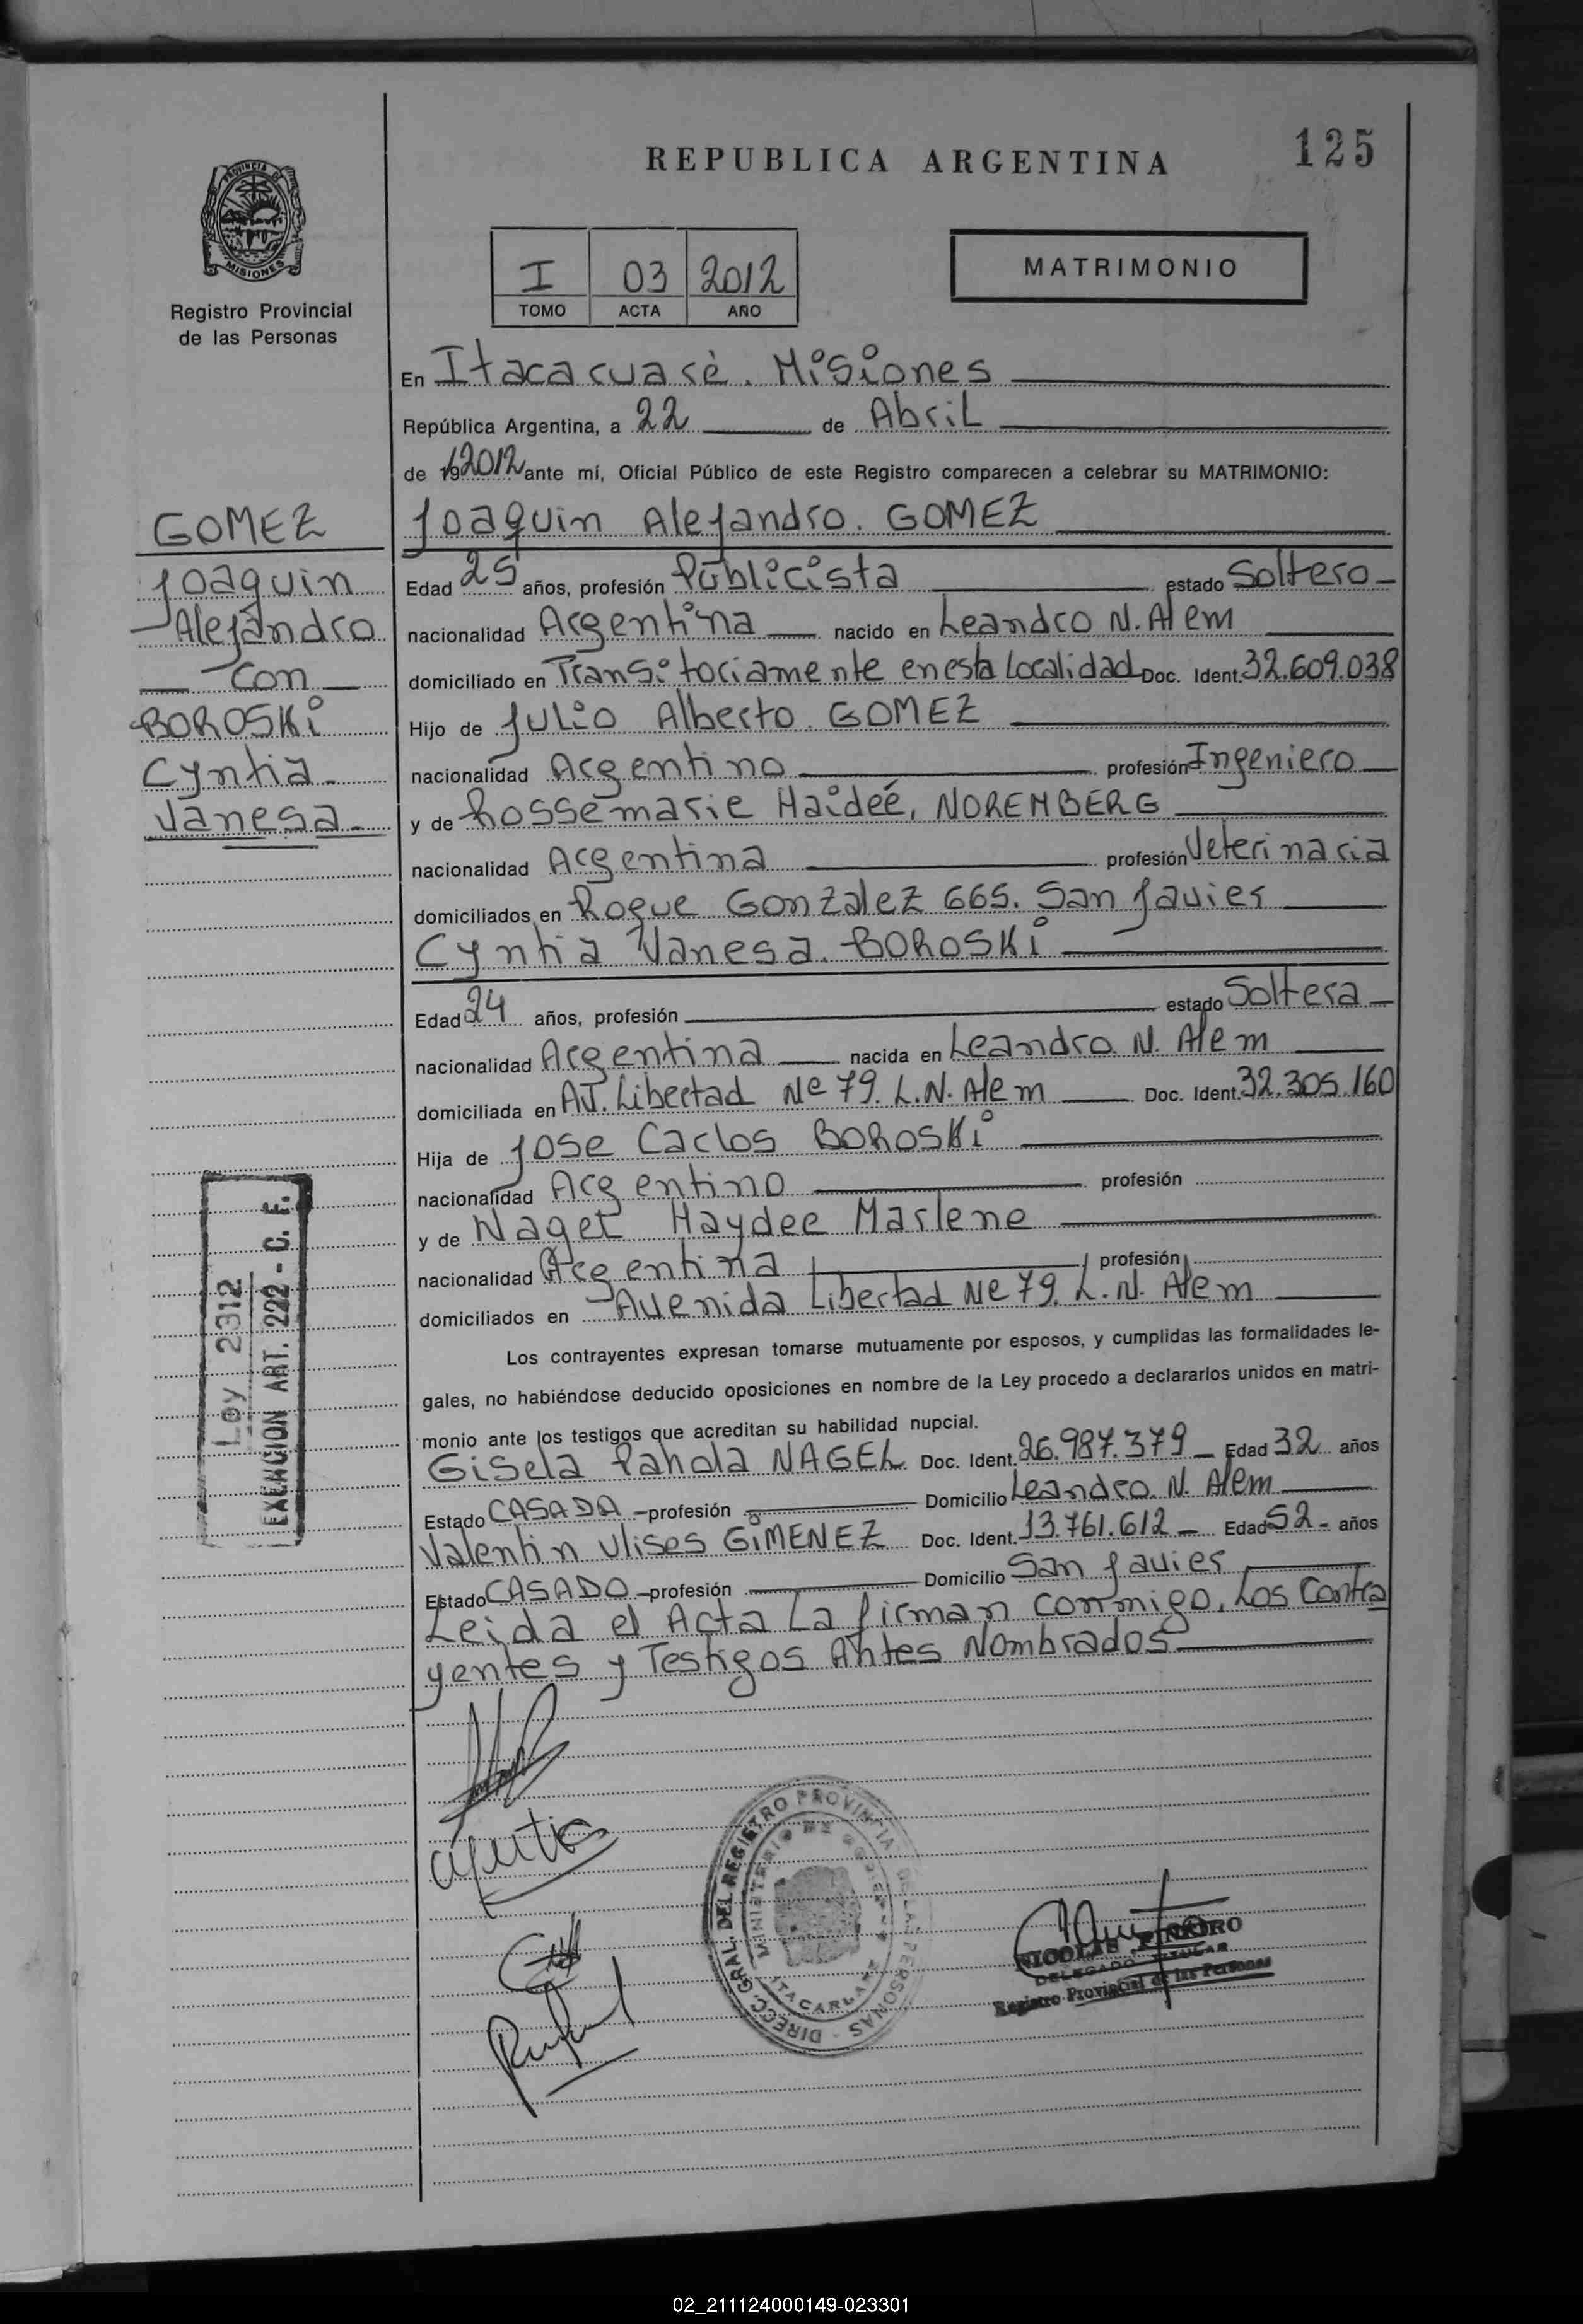 REPUBLICA ARGENTINA
125
PROVINCIA D
MISIONES
Registro Provincial
de las Personas
I 03 2012
TOMO ACTA AÑO
MATRIMONIO
En Itacacuaré. Misiones
República Argentina, a 22 de Abril
de 19 2012 ante mí, Oficial Público de este Registro comparecen a celebrar su MATRIMONIO:
GOMEZ
Joaquin
Alejandro
con
BOROSKi
Cyntia
Vanesa
Joaquin Alejandro. GOMEZ
Edad 25 años, profesión Publicista estado Soltero
nacionalidad Argentina nacido en Leandro N. Alem
domiciliado en Transitoriamente en esta Localidad Doc. Ident. 32.609.038
Hijo de Julio Alberto. GOMEZ
nacionalidad Argentino profesión Ingeniero
y de Rossemarie Haideé, NOREMBERG
nacionalidad Argentina profesión Veterinaria
domiciliados en Roque Gonzalez 665. San Javier
Cyntia Vanesa. BOROSKi
Edad 24 años, profesión estado Soltera
nacionalidad Argentina nacida en Leandro N. Alem
domiciliada en AV. Libertad Nº 79. L.N. Alem Doc. Ident. 32.305.160
Hija de Jose Carlos BOROSKi
nacionalidad Argentino profesión
y de Nagel Haydee Marlene
nacionalidad Argentina profesión
domiciliados en Avenida Libertad Nº 79. L.N. Alem
Los contrayentes expresan tomarse mutuamente por esposos, y cumplidas las formalidades le-
gales, no habiéndose deducido oposiciones en nombre de la Ley procedo a declararlos unidos en matri-
monio ante los testigos que acreditan su habilidad nupcial.
Gisela Pahola NAGEL Doc. Ident. 26.987.379 Edad 32 años
Estado CASADA profesión Domicilio Leandro. N. Alem
Valentin Ulises GiMENEZ Doc. Ident. 13.761.612 Edad 52 años
Estado CASADO profesión Domicilio San Javier
Leida el Acta La firman conmigo, Los Contra
yentes y Testigos Antes Nombrados
Ley 2312
EXENCION ART. 222 - C. F.
DIRECC. GRAL. DEL REGISTRO PROVINCIAL DE LAS PERSONAS
MINISTERIO DE GOBIERNO
ITACARUARE
NICOLAS PINEIRO
DELEGADO TITULAR
Registro Provincial de las Personas
02_211124000149-023301